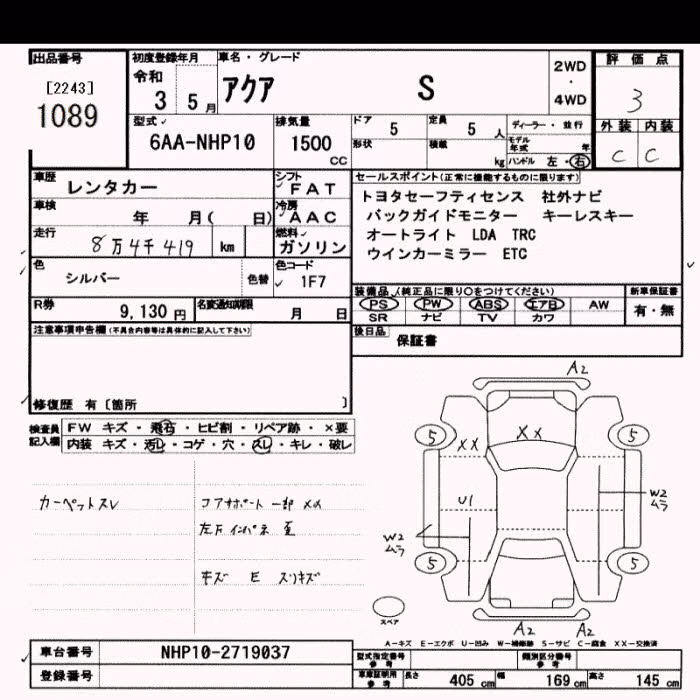 出品番号
[2243]
1089
初度登録年月
令和
3 5 月
車名・グレード
アクア S
2WD
・
4WD
評価点
3
外装 内装
C C
型式
6AA-NHP10
排気量
1500
CC
ドア 5
定員 5 人
形状
積載 kg
ディーラー・並行
モデル年式 年
ハンドル 左・右
車歴 レンタカー
シフト FAT
車検 年 月( 日)
冷房 AAC
走行 8万4千419 km
燃料 ガソリン
色 シルバー 色替
色コード 1F7
セールスポイント(正常に機能するものに限ります)
トヨタセーフティセンス 社外ナビ
バックガイドモニター キーレスキー
オートライト LDA TRC
ウインカーミラー ETC
R券 9,130 円
名変通知期限 月 日
装備品(純正品に限り○をつけてください)
PS PW ABS エアB AW
SR ナビ TV カワ
新車保証書
有・無
後日品 保証書
注意事項申告欄(不具合内容等は具体的に記入して下さい)
修復歴 有〔箇所 〕
検査員記入欄
FW キズ・飛石・ヒビ割・リペア跡・×要
内装 キズ・汚レ・コゲ・穴・スレ・キレ・破レ
カーペットスレ
コアサポート 一部 メメ
キズ E スリキズ
A2
5 5
XX XX
U1
W2
ムラ
W2
ムラ
5 5
スペア
A2 A2
A-キズ E-エクボ U-凹み W-補修跡 S-サビ C-腐食 XX-交換済
車台番号 NHP10-2719037
登録番号
型式指定番号
参考
類別区分番号
参考
車庫証明用
参考
長さ 405 cm 幅 169 cm 高さ 145 cm